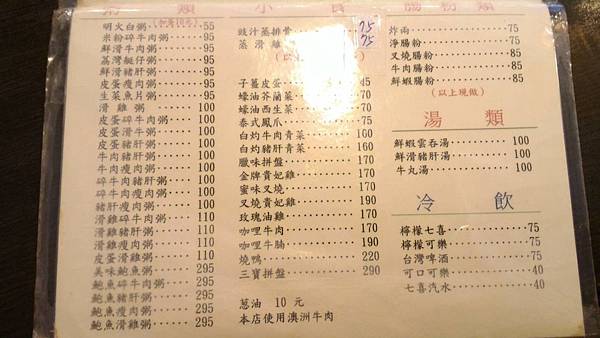 粥 類
明火白粥 55
米粉碎牛肉粥 95
鮮滑牛肉粥 95
荔灣艇仔粥 95
鮮滑豬肝粥 95
皮蛋瘦肉粥 95
生菜魚片粥 95
滑雞粥 100
皮蛋碎牛肉粥 100
皮蛋滑牛粥 100
皮蛋豬肝粥 100
牛肉豬肝粥 100
牛肉瘦肉粥 100
碎牛肉豬肝粥 100
碎牛肉瘦肉粥 100
豬肝瘦肉粥 100
滑雞碎牛肉粥 110
滑雞牛肉粥 110
滑雞豬肝粥 110
滑雞瘦肉粥 110
皮蛋滑雞粥 110
美味鮑魚粥 295
鮑魚碎牛肉粥 295
鮑魚豬肝粥 295
鮑魚瘦肉粥 295
鮑魚滑雞粥 295
小 食
豉汁蒸排骨 75
蒸滑雞 75
子薑皮蛋 45
蠔油芥蘭菜 70
蠔油西生菜 70
泰式鳳爪 75
白灼牛肉青菜 160
白灼豬肝青菜 160
臘味拼盤 170
金牌貴妃雞 170
蜜味叉燒 170
叉燒貴妃雞 190
玫瑰油雞 170
咖哩牛肉 170
咖哩牛腩 190
燒鴨 220
三寶拼盤 290
蔥油 10 元
本店使用澳洲牛肉
腸粉類
炸兩 75
淨腸粉 75
叉燒腸粉 85
牛肉腸粉 85
鮮蝦腸粉 85
(以上現做)
湯 類
鮮蝦雲吞湯 100
鮮滑豬肝湯 100
牛丸湯 100
冷 飲
檸檬七喜 75
檸檬可樂 75
台灣啤酒 75
可口可樂 40
七喜汽水 40